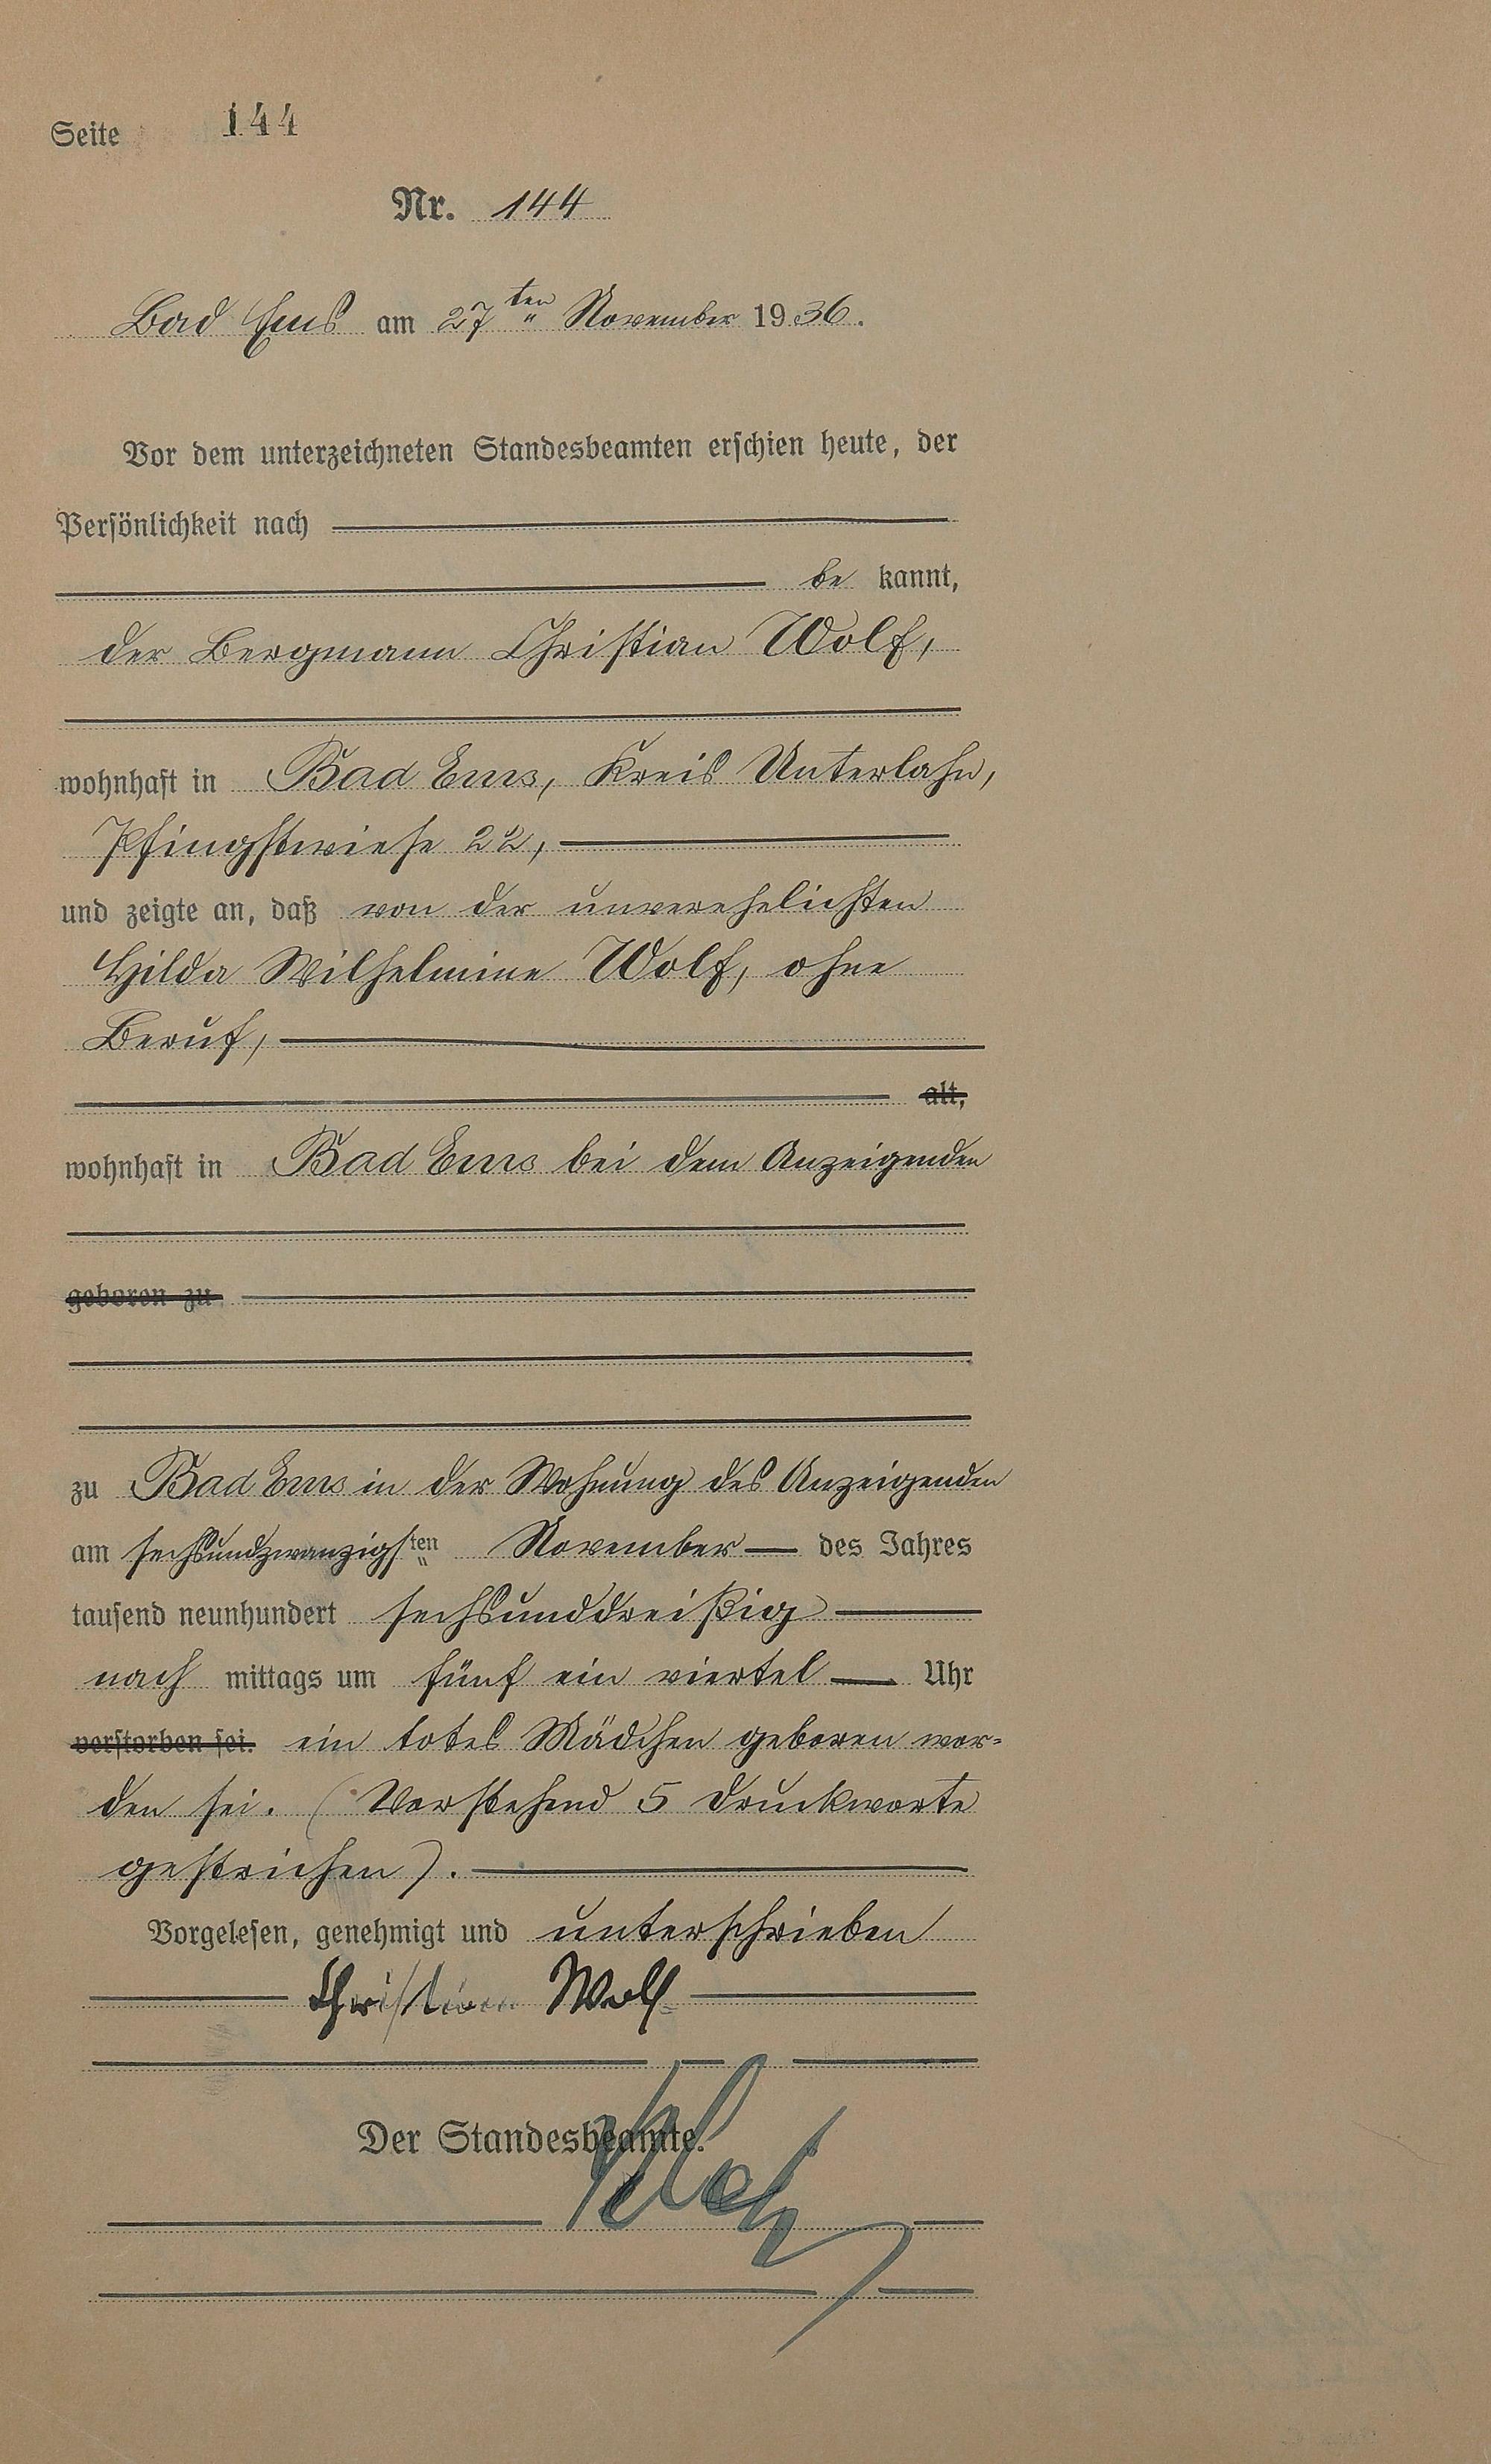 Seite 144
Nr. 144
Bad Ems am 27ten November 1936.
Vor dem unterzeichneten Standesbeamten erschien heute, der
Persönlichkeit nach
be kannt,
der Bergmann Christian Wolf,
wohnhaft in Bad Ems, Kreis Unterlahn,
Pfingstwiese 22,
und zeigte an, daß von der unverehelichten
Hilda Wilhelmine Wolf, ohne
Beruf,
alt,
wohnhaft in Bad Ems bei dem Anzeigenden
geboren zu
zu Bad Ems in der Wohnung des Anzeigenden
am sechsundzwanzigsten November des Jahres
tausend neunhundert sechsunddreißig
nach mittags um fünf ein viertel Uhr
verstorben sei. ein totes Mädchen geboren wor=
den sei. (Vorstehend 5 Druckworte
gestrichen).
Vorgelesen, genehmigt und unterschrieben
Christian Wolf
Der Standesbeamte.